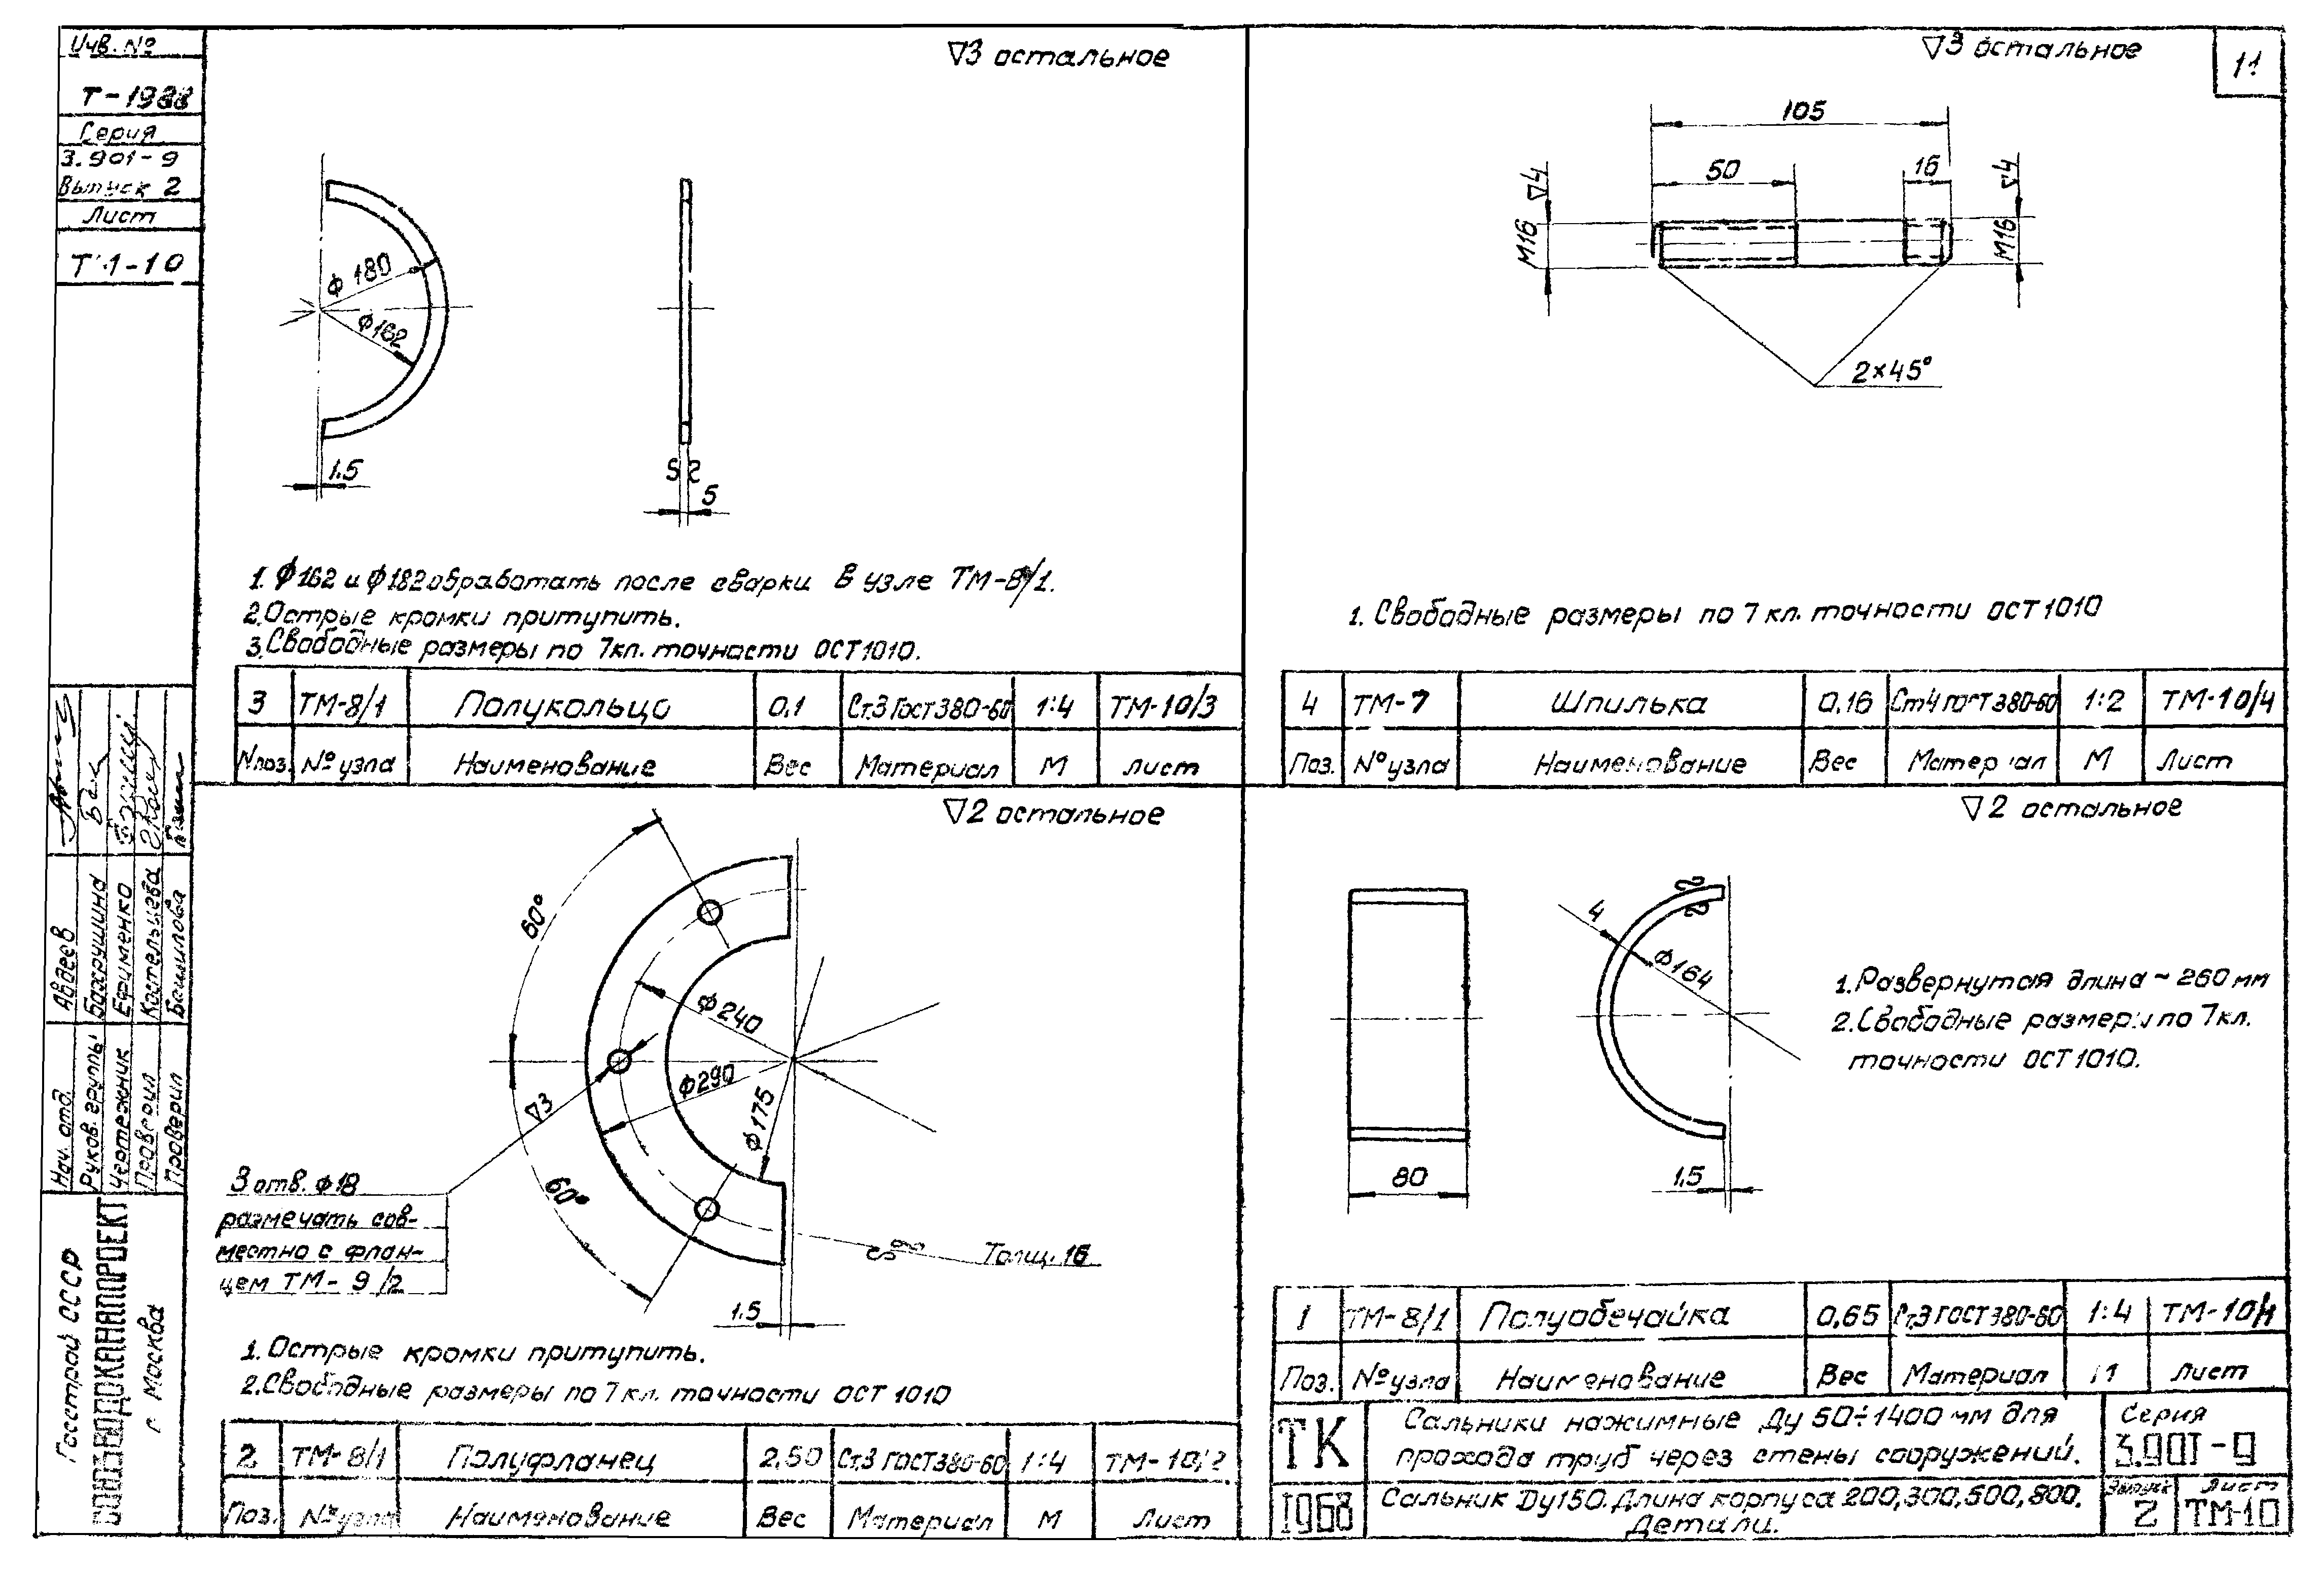 Инв. №
Т-1988
Серия
3.901-9
Выпуск 2
Лист
ТМ-10
11
▽3 остальное
ϕ180
ϕ162
1.5
S2
5
1. ϕ162 и ϕ182 обработать после сварки в узле ТМ-8/1.
2. Острые кромки притупить.
3. Свободные размеры по 7 кл. точности ОСТ 1010.
3 ТМ-8/1 Полукольцо 0,1 Ст.3 ГОСТ 380-60 1:4 ТМ-10/3
№ поз. № узла Наименование Вес Материал М Лист
▽3 остальное
105
50
16
М16 ▽4
М16 ▽4
2×45°
1. Свободные размеры по 7 кл. точности ОСТ 1010
4 ТМ-7 Шпилька 0,16 Ст4 ГОСТ 380-60 1:2 ТМ-10/4
Поз. № узла Наименование Вес Материал М Лист
▽2 остальное
60°
60°
ϕ240
ϕ290
ϕ175
▽3
3 отв. ϕ18
размечать сов-
местно с флан-
цем ТМ-9/2
Толщ. 16
1.5
1. Острые кромки притупить.
2. Свободные размеры по 7 кл. точности ОСТ 1010
2 ТМ-8/1 Полуфланец 2,50 Ст.3 ГОСТ 380-60 1:4 ТМ-10/2
Поз. № узла Наименование Вес Материал М Лист
▽2 остальное
4
ϕ164
80
1.5
1. Развернутая длина ~ 260 мм
2. Свободные размеры по 7 кл.
точности ОСТ 1010.
1 ТМ-8/1 Полуобечайка 0,65 Ст.3 ГОСТ 380-60 1:4 ТМ-10/1
Поз. № узла Наименование Вес Материал М Лист
ТК
1968
Сальники нажимные Ду 50÷1400 мм для
прохода труб через стены сооружений.
Сальник Ду150. Длина корпуса 200,300,500,800.
Детали.
Серия
3.901-9
Выпуск
2
Лист
ТМ-10
Нач. отд. Авдеев
Руков. группы Бахрушина
Чертежник Ефименко
Проверил Костельцева
Проверил Башилова
Госстрой СССР
СОЮЗВОДОКАНАЛПРОЕКТ
г. Москва